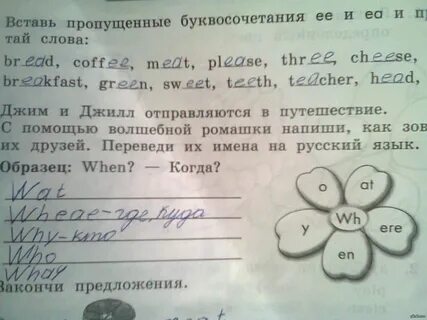 Вставь пропущенные буквосочетания ee и ea и п
тай слова:
bread, coffee, meat, please, three, cheese,
breakfast, green, sweet, teeth, teacher, head,
Джим и Джилл отправляются в путешествие.
С помощью волшебной ромашки напиши, как зов
их друзей. Переведи их имена на русский язык.
Образец: When? — Когда?
Wat
Wheae-где, куда
Why-кто
Who
Whay
Закончи предложения.
o
at
Wh
y
ere
en